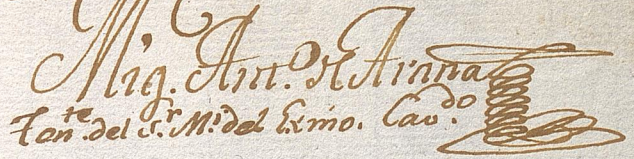 Mig. Ant.º de Arana
Ten.te del S.r M.s del Exmo. Cav.do